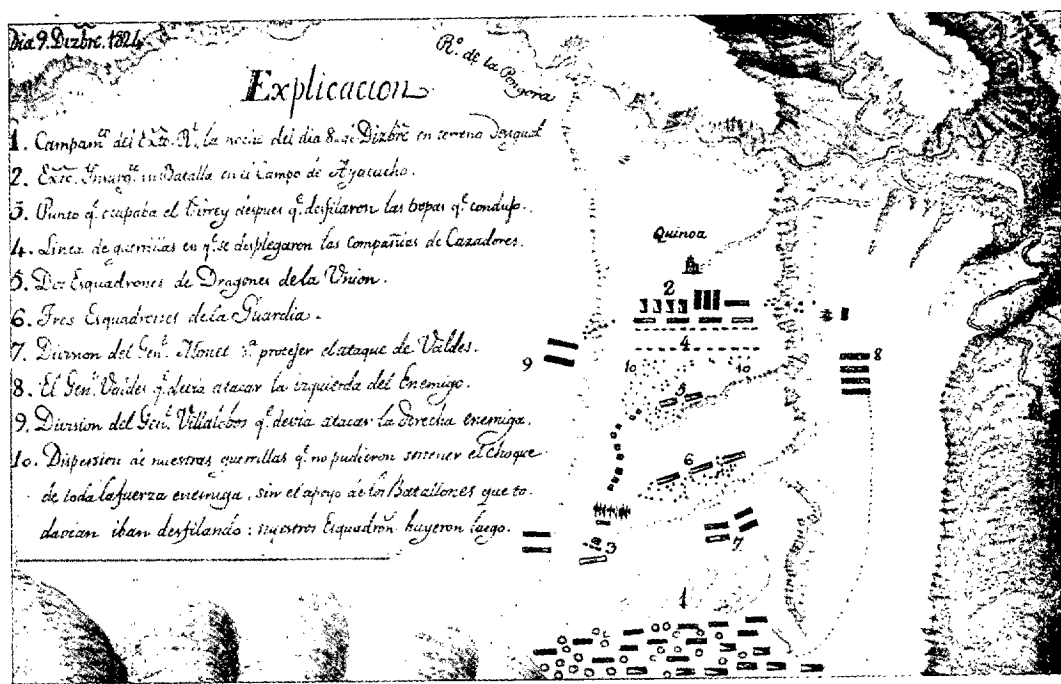 Dia 9. Dizbre. 1824.
Ro. de la Pongora
Explicacion
1. Campamto. del Exto. Rl. la noche del dia 8. de Dizbre en terreno desigual
2. Exto. Insurgte. en Batalla en el Campo de Ayacucho.
3. Punto qe. ocupaba el Virrey despues qe. desfilaron las tropas qe. condujo.
4. Linea de guerrillas en qe. se desplegaron las Compañias de Cazadores.
5. Dos Esquadrones de Dragones de la Union.
6. Tres Esquadrones de la Guardia.
7. Division del Genl. Monet pa. protejer el ataque de Valdes.
8. El Genl. Valdes qe. devia atacar la izquierda del Enemigo.
9. Division del Genl. Villalobos qe. devia atacar la derecha enemiga.
10. Dispersion de nuestras guerrillas qe. no pudieron sostener el choque
de toda la fuerza enemiga, sin el apoyo de los Batallones que to-
davian iban desfilando: nuestros Esquadrn. huyeron luego.
Quinoa
2
4
8
9
10
10
5
6
7
3
1